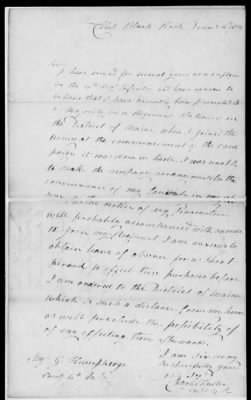 Camp Black Rock
Sir,
I have served for several years as a captain
in the 4th Infantry and have reason to
believe that I have recently been promoted to
a majority in a Regiment stationed in
the District of Maine. When I joined the
army at the commencement of the cam
paign it was done in haste, I was unable
to make the necessary arrangements for the
convenience of my
notice of my Promotion
will probably be accompanied with orders
to join my Regiment, I am anxious to
obtain leave of absence for a short
period to effect this purpose before
I am ordered to the District of Maine
which is such a distance from me here
as will preclude the possibility of
of my effecting them afterwards.
I am Sir very
respectfully your
obdt
Maj G. Humphreys
Comg 4th Infy